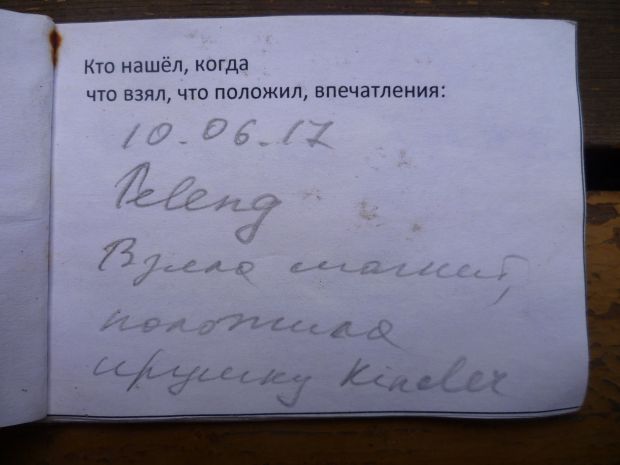 Кто нашёл, когда
что взял, что положил, впечатления:
10.06.17
Peleng
Взяла магнит,
положила
игрушку Kinder